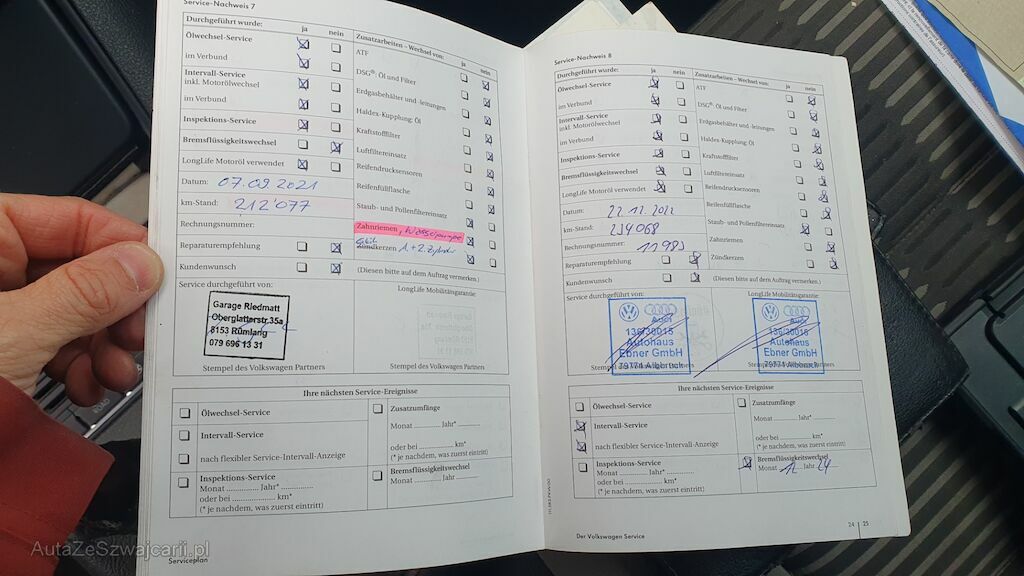 Service-Nachweis 7
Durchgeführt wurde:
ja
nein
Ölwechsel-Service
im Verbund
Intervall-Service
inkl. Motorölwechsel
im Verbund
Inspektions-Service
Bremsflüssigkeitswechsel
LongLife Motoröl verwendet
Datum: 07.09.2021
km-Stand: 212'077
Rechnungsnummer:
Reparaturempfehlung
Kundenwunsch
Zusatzarbeiten – Wechsel von:
ja
nein
ATF
DSG®: Öl und Filter
Erdgasbehälter und -leitungen
Haldex-Kupplung: Öl
Kraftstofffilter
Luftfiltereinsatz
Reifendrucksensoren
Reifenfüllflasche
Staub- und Pollenfiltereinsatz
Zahnriemen, Wasserpumpe
Zündkerzen 1+2. Zylinder
(Diesen bitte auf dem Auftrag vermerken.)
Service durchgeführt von:
LongLife Mobilitätsgarantie
Garage Riedmatt
Oberglatterstr.35a
8153 Rümlang
079 696 13 31
Stempel des Volkswagen Partners
Stempel des Volkswagen Partners
Ihre nächsten Service-Ereignisse
Ölwechsel-Service
Intervall-Service
nach flexibler Service-Intervall-Anzeige
Inspektions-Service
Monat .............. Jahr* ..............
oder bei .................. km*
(* je nachdem, was zuerst eintritt)
Zusatzumfänge
Monat .............. Jahr* ..............
oder bei .................. km*
(* je nachdem, was zuerst eintritt)
Bremsflüssigkeitswechsel
Monat .............. Jahr ..............
Serviceplan
AutaZeSzwajcarii.pl
Service-Nachweis 8
Durchgeführt wurde:
ja
nein
Ölwechsel-Service
im Verbund
Intervall-Service
inkl. Motorölwechsel
im Verbund
Inspektions-Service
Bremsflüssigkeitswechsel
LongLife Motoröl verwendet
Datum: 22.12.2022
km-Stand: 234068
Rechnungsnummer: 11983
Reparaturempfehlung
Kundenwunsch
Zusatzarbeiten – Wechsel von:
ja
nein
ATF
DSG®: Öl und Filter
Erdgasbehälter und -leitungen
Haldex-Kupplung: Öl
Kraftstofffilter
Luftfiltereinsatz
Reifendrucksensoren
Reifenfüllflasche
Staub- und Pollenfiltereinsatz
Zahnriemen
Zündkerzen
(Diesen bitte auf dem Auftrag vermerken.)
Service durchgeführt von:
LongLife Mobilitätsgarantie
Audi
136/30015
Autohaus
Ebner GmbH
79774 Albbruck
Audi
136/30015
Autohaus
Ebner GmbH
79774 Albbruck
Ihre nächsten Service-Ereignisse
Ölwechsel-Service
Intervall-Service
nach flexibler Service-Intervall-Anzeige
Inspektions-Service
Monat .............. Jahr* ..............
oder bei .................. km*
(* je nachdem, was zuerst eintritt)
Zusatzumfänge
Monat .............. Jahr* ..............
oder bei .................. km*
(* je nachdem, was zuerst eintritt)
Bremsflüssigkeitswechsel
Monat 12 Jahr 24
24
25
Der Volkswagen Service